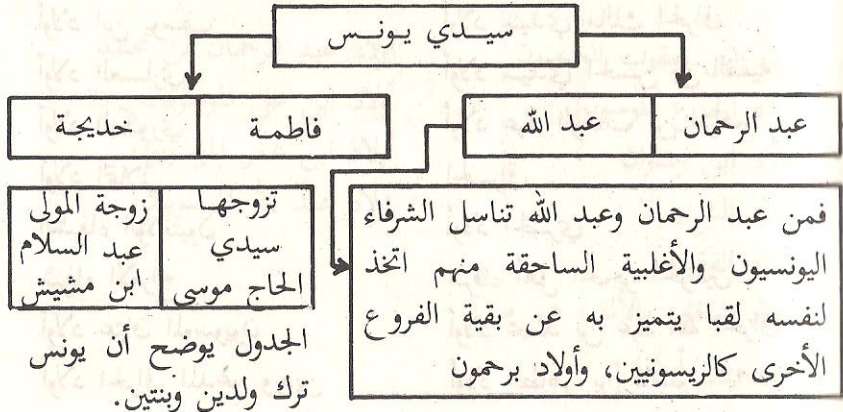 سيدي يونس
عبد الرحمان
عبد الله
فاطمة
خديجة
فمن عبد الرحمان وعبد الله تناسل الشرفاء
اليونسيون والأغلبية الساحقة منهم اتخذ
لنفسه لقبا يتميز به عن بقية الفروع
الأخرى كالريسونيين، وأولاد برحمون
تزوجها
سيدي
الحاج موسى
زوجة المولى
عبد السلام
ابن مشيش
الجدول يوضح أن يونس
ترك ولدين وبنتين.